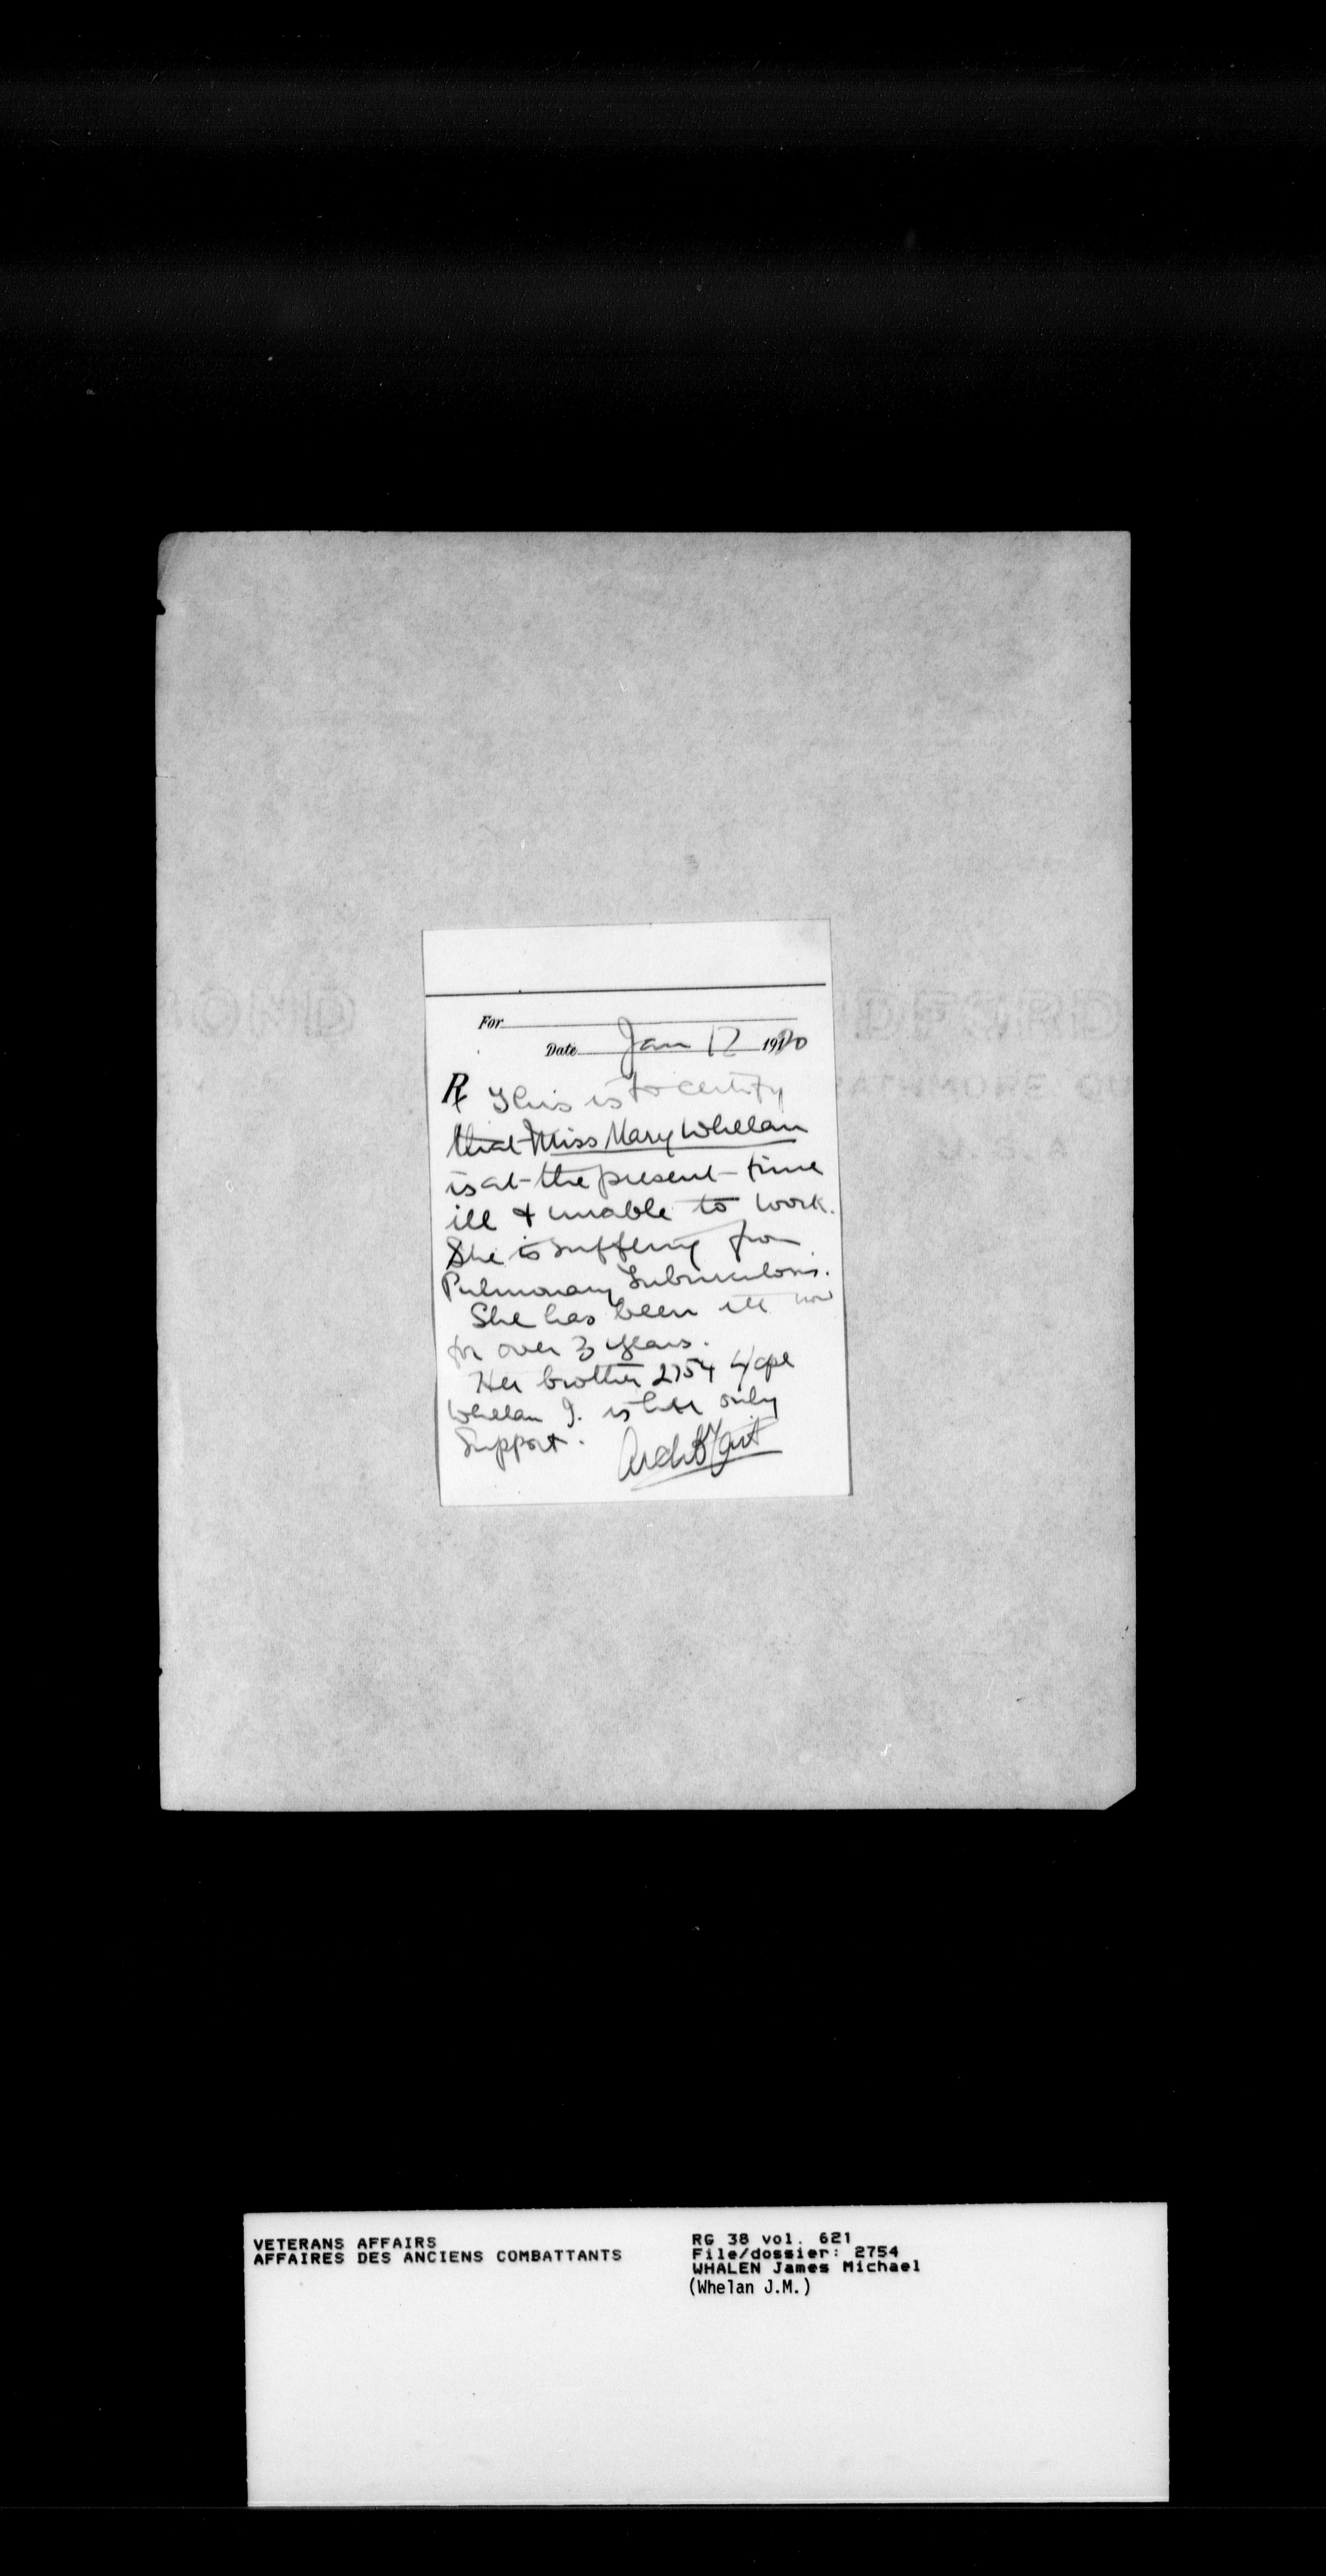 For
Date Jan 12 1920
℞ This is to certify
that Miss Mary Whelan
is at the present time
ill & unable to work.
She is suffering from
Pulmonary Tuberculosis.
She has been ill now
for over 3 years.
Her brother 2754 L/Cpl
Whelan J. is her only
Support.
VETERANS AFFAIRS
AFFAIRES DES ANCIENS COMBATTANTS
RG 38 vol. 621
File/dossier: 2754
WHALEN James Michael
(Whelan J.M.)